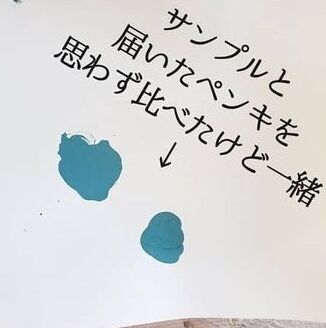 サンプルと
届いたペンキを
思わず比べたけど一緒
↓